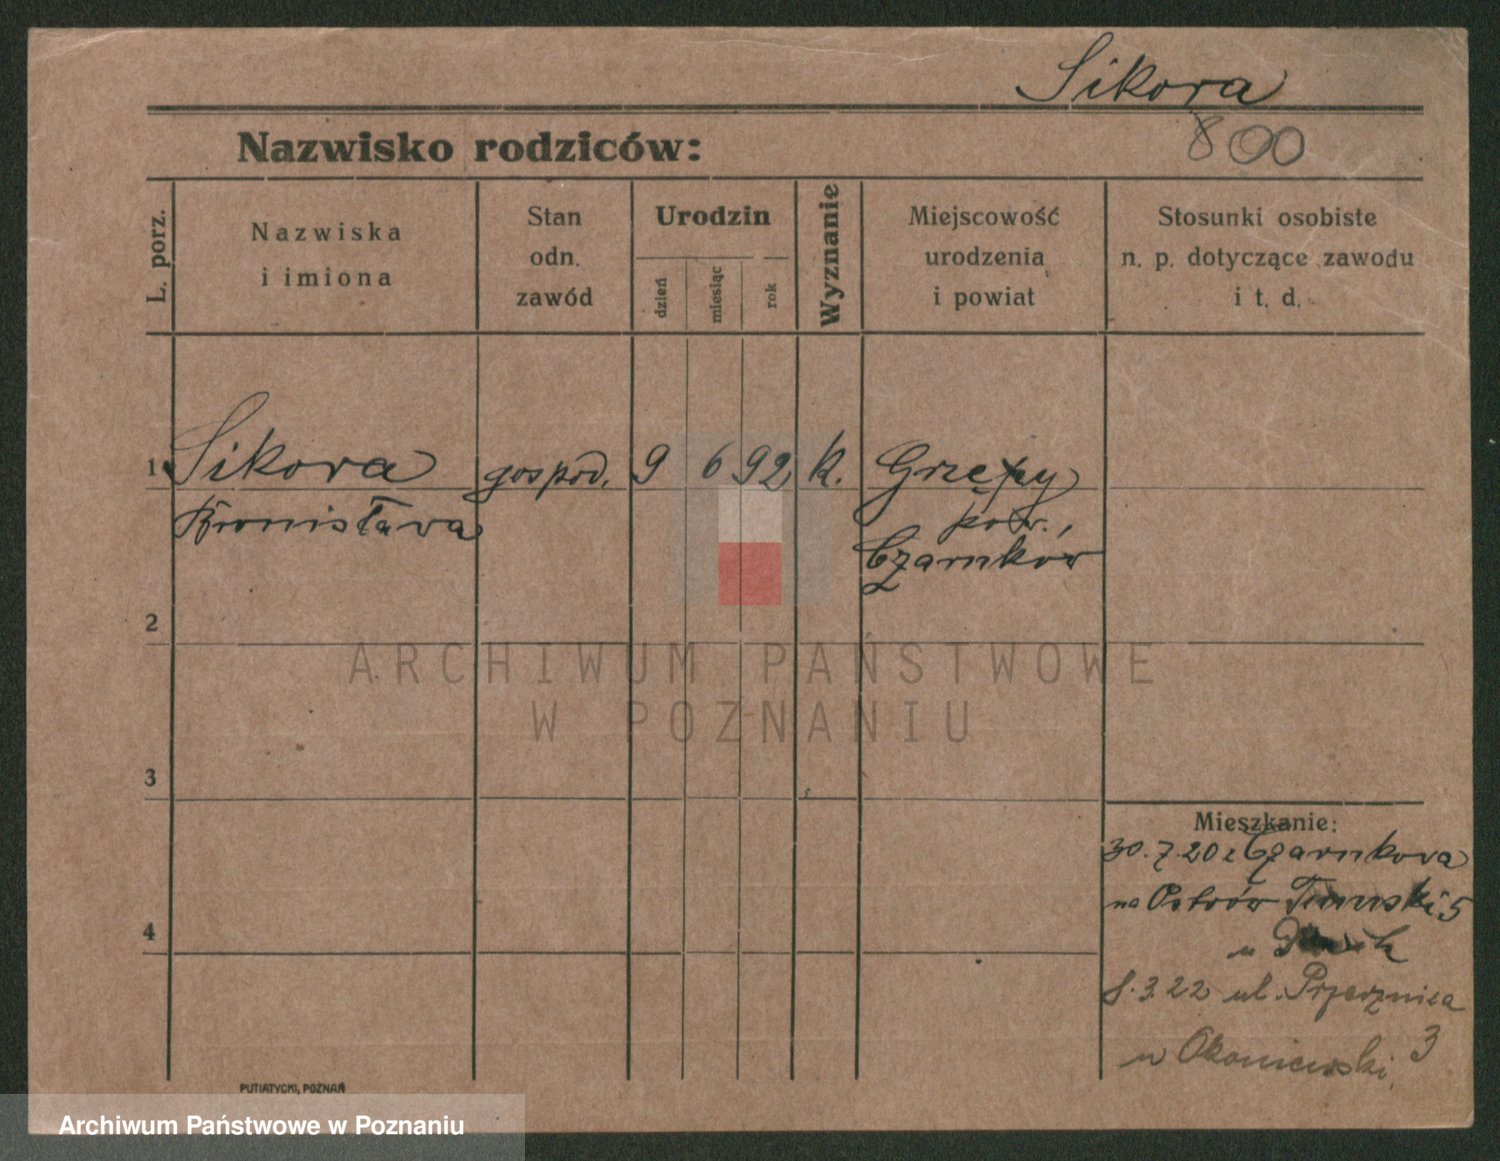 Sikora
800
Nazwisko rodziców:
L. porz.
Nazwiska
i imiona
Stan
odn.
zawód
Urodzin
dzień
miesiąc
rok
Wyznanie
Miejscowość
urodzenia
i powiat
Stosunki osobiste
n. p. dotyczące zawodu
i t. d.
1 Sikora gospod. 9 6 92 k. Grzępy
Bronisława pow.
Czarnków
2
3
4
Mieszkanie:
30.7.20 z Czarnkova
na Ostrów Tumski 5
u
8.3.22 ul. Przecznica
3
u Okoniewski
PUTIATYCKI, POZNAŃ
ARCHIWUM PAŃSTWOWE
W POZNANIU
Archiwum Państwowe w Poznaniu